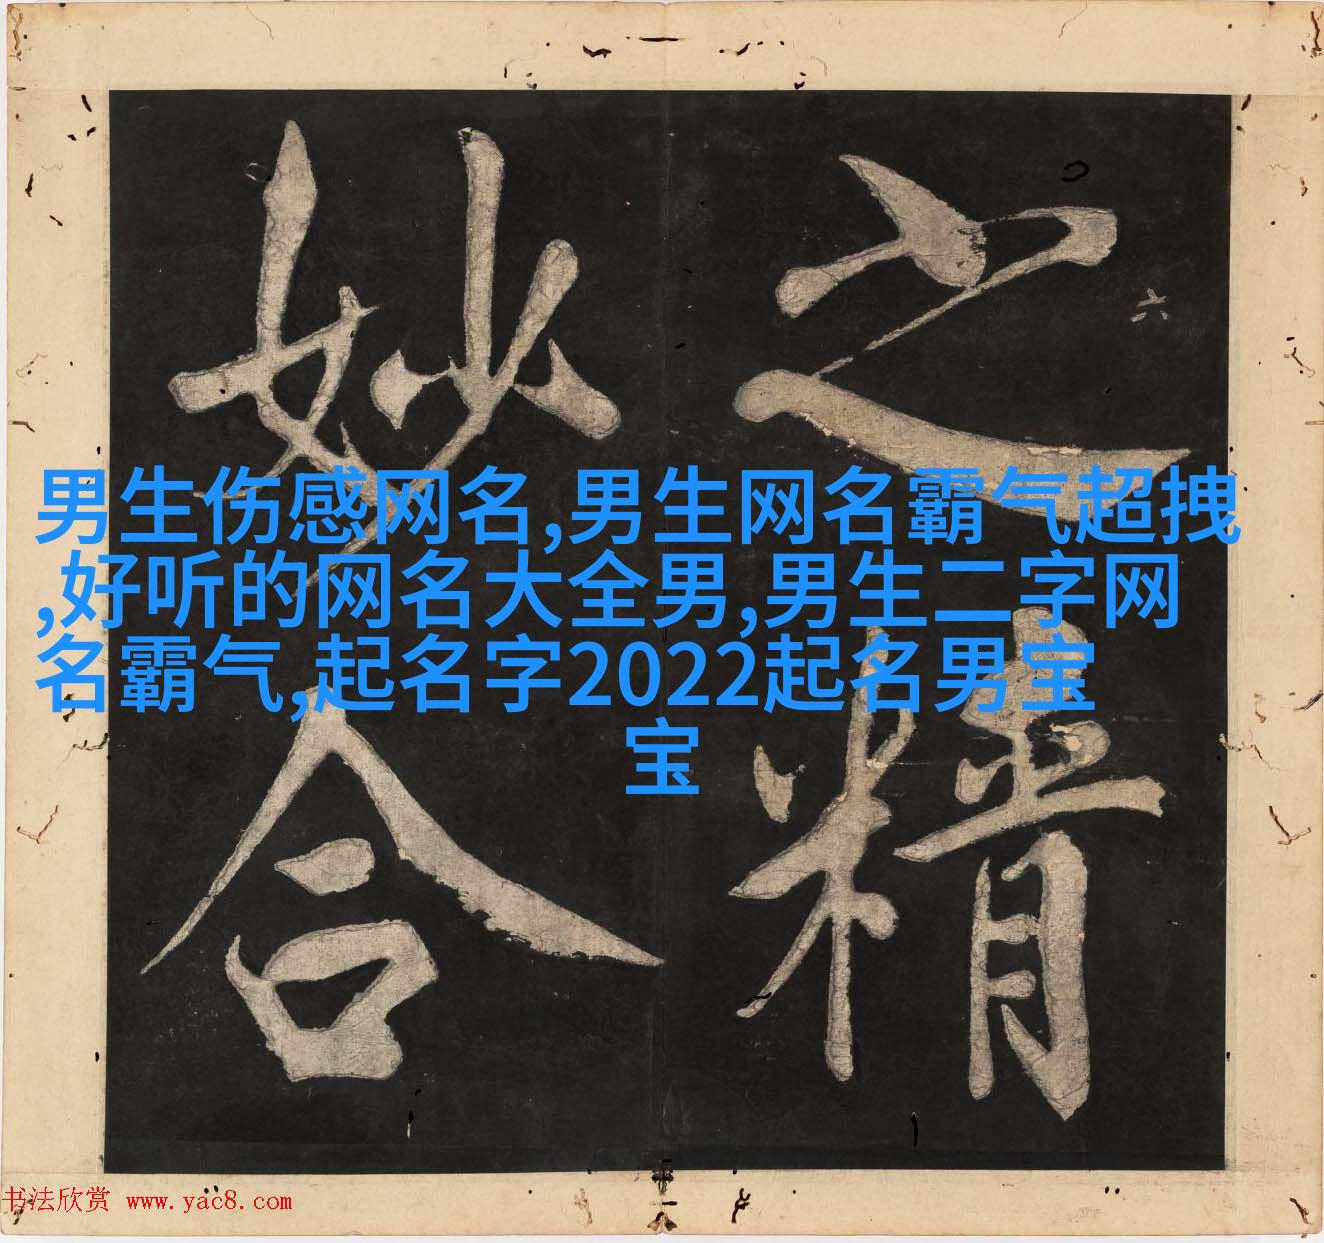 之精
妙合
六
男生伤感网名,男生网名霸气超拽
,好听的网名大全男,男生二字网
名霸气,起名字2022起名男宝
宝
书法欣赏 www.yac8.com